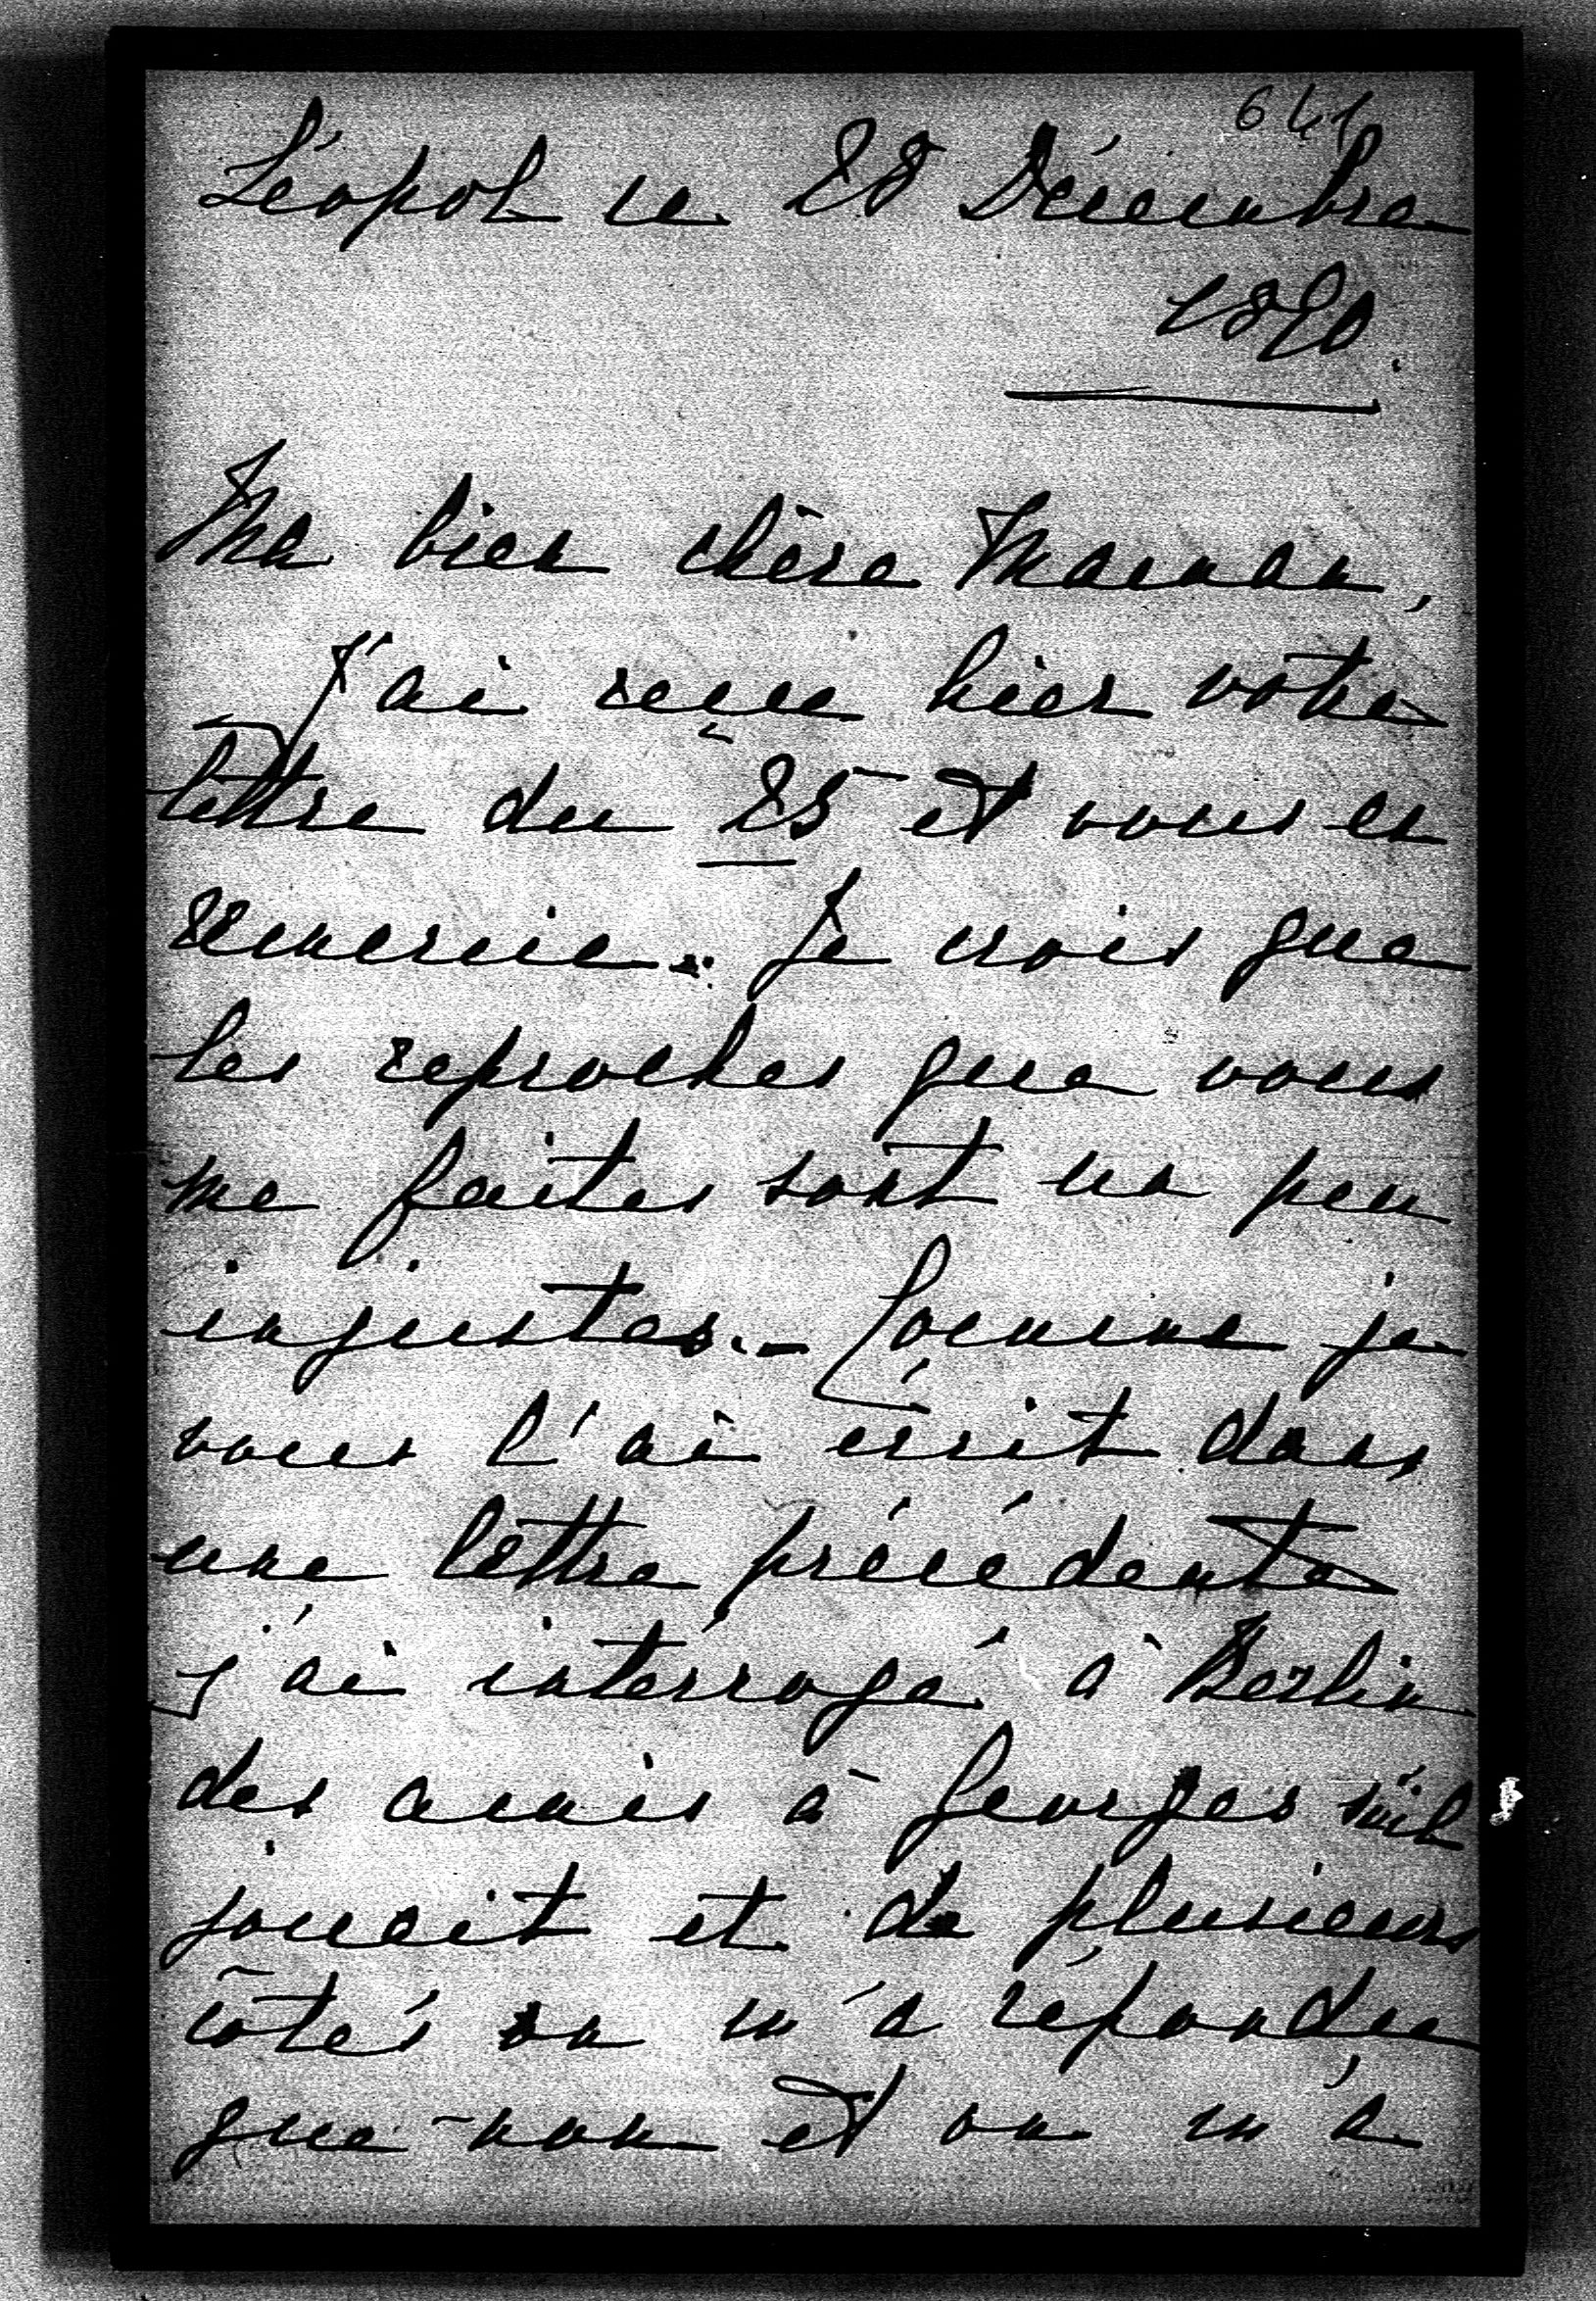 641
Léopol ce 28 Décembre
18
Ma bien chère Maman,
J'ai reçue hier votre
lettre du 25 et vous en
remercie. Je crois que
les reproches que vous
me faites sont un peu
injustes. – Comme je
vous l'ai écrit dans
une lettre précédente
j'ai intérrogé à Berlin
des amis à Georges s'il
jouait et de plusieurs
côtés on m'a répondu
que non et on m'a